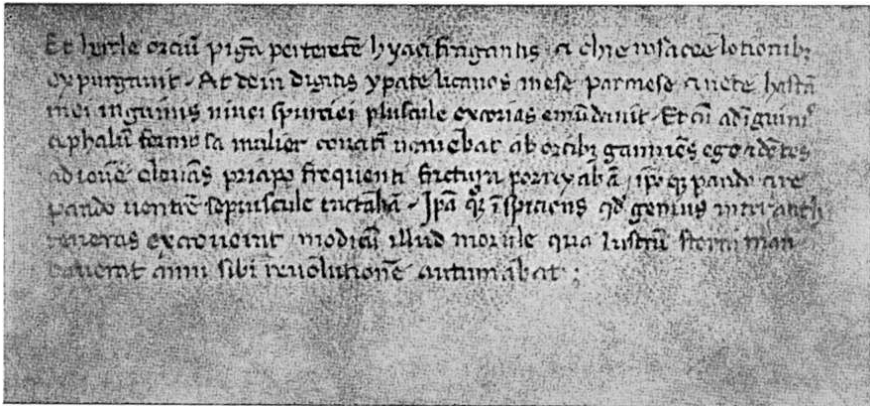 Et hercle orciū pigā perteretē hyaci fragantis & chie rosacee lotionibꝫ
expurgauit. At dein digitis ypate licanos mese parmese & nete hastā
mei inguinis niuei spurciei pluscule excorias emūdauit. Et cū ad īguinis
cephalū formosa mulier concitī ueniebat ab orcibꝫ ganniēs ego & dētes
ad iouē eleuās priapo frequenti frictura porrixabā ipoqꝫ pando & re
pando uentrē sepiuscule tactabā. Ipā qꝫ īspiciens qđ genius inter anth
teneras excreuerit modicū illud morule qua lustrū sterni man
dauerat anni sibi reuolutionē autumabat;